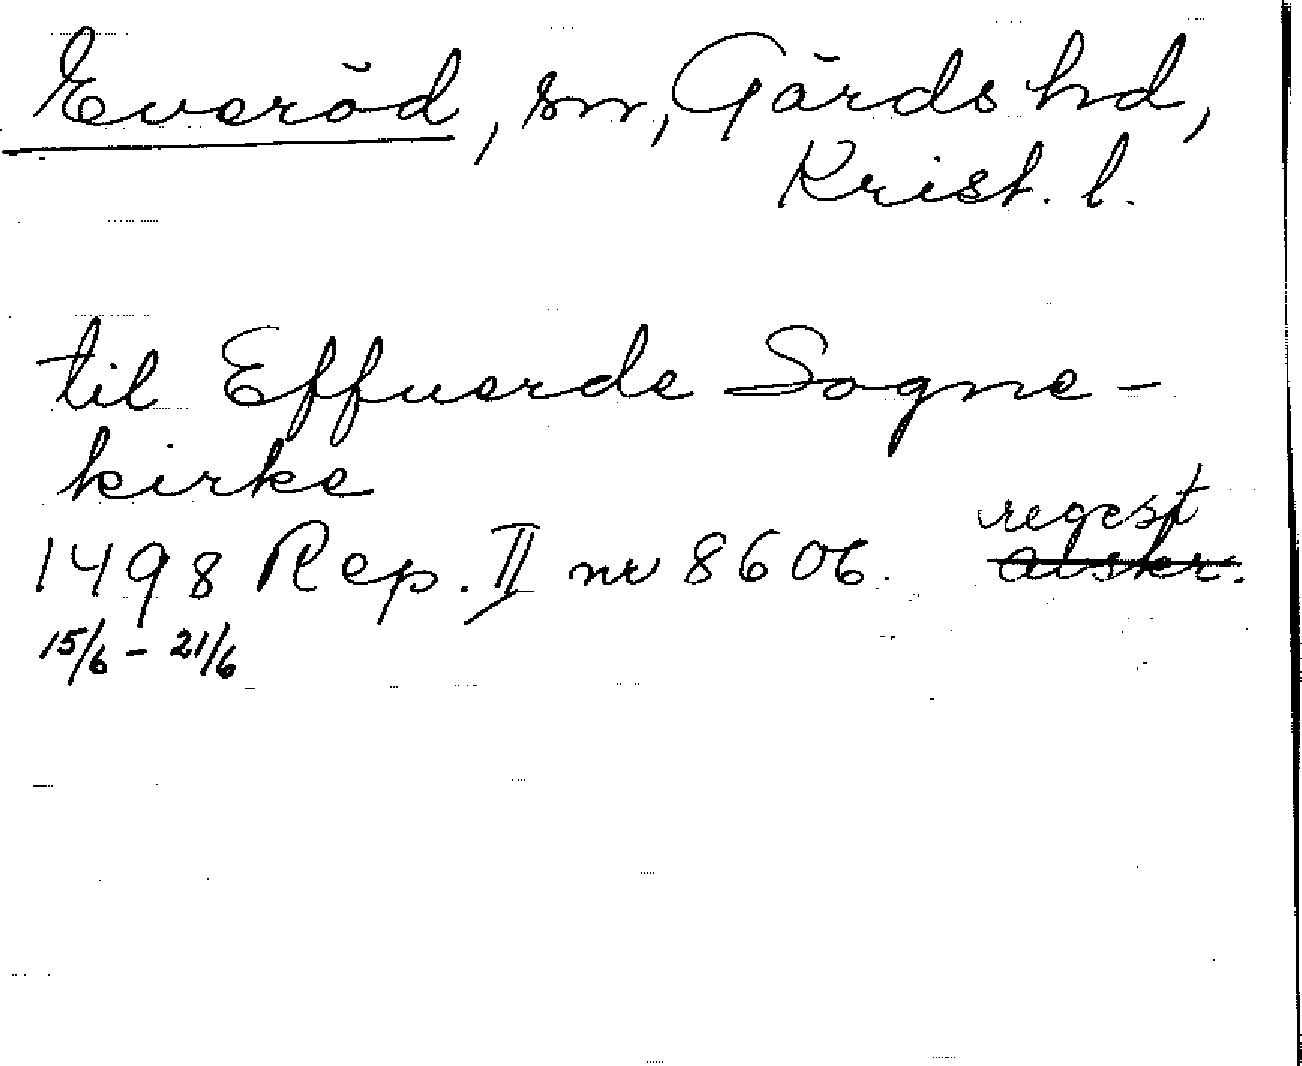 Everöd, sn, Gärds hd,
Krist. l.
til Effuerde Sogne-
kirke
regest
1498 Rep. II nr 8606. avskr.
15/6 - 21/6